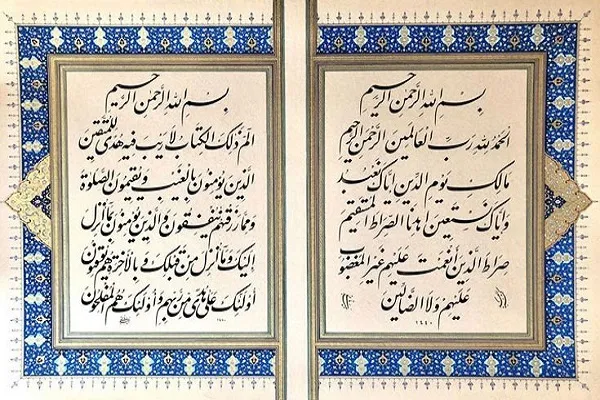 بِسْمِ اللهِ الرَّحْمٰنِ الرَّحیمِ
اَلْحَمْدُ لِلّٰهِ رَبِّ الْعالَمینَ اَلرَّحْمٰنِ الرَّحیمِ
مالِکِ یَوْمِ الدّینِ اِیّاکَ نَعْبُدُ
وَاِیّاکَ نَسْتَعینُ اِهْدِنَا الصِّراطَ الْمُسْتَقیمَ
صِراطَ الَّذینَ اَنْعَمْتَ عَلَیْهِمْ غَیْرِ الْمَغْضُوبِ
عَلَیْهِمْ وَلَا الضّالّینَ
۱۴۴۰
بِسْمِ اللهِ الرَّحْمٰنِ الرَّحیمِ
الم ذٰلِکَ الْکِتابُ لا رَیْبَ فیهِ هُدًی لِلْمُتَّقینَ
اَلَّذینَ یُؤْمِنُونَ بِالْغَیْبِ وَیُقیمُونَ الصَّلوةَ
وَمِمّا رَزَقْناهُمْ یُنْفِقُونَ وَالَّذینَ یُؤْمِنُونَ بِما اُنْزِلَ
اِلَیْکَ وَما اُنْزِلَ مِنْ قَبْلِکَ وَبِالْاٰخِرَةِ هُمْ یُوقِنُونَ
اُولٰئِکَ عَلٰی هُدًی مِنْ رَبِّهِمْ وَاُولٰئِکَ هُمُ الْمُفْلِحُونَ